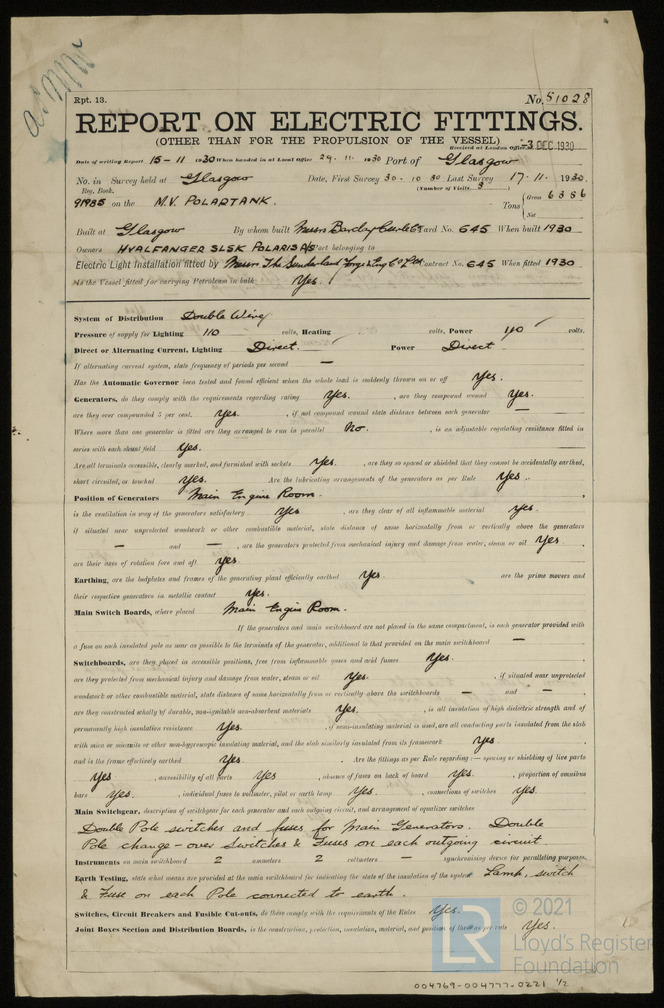 Rpt. 13.
No. 51028
REPORT ON ELECTRIC FITTINGS.
(OTHER THAN FOR THE PROPULSION OF THE VESSEL)
Received at London Office -3 DEC 1930
Date of writing Report 15-11 1930 When handed in at Local Office 29.11.1930 Port of Glasgow
No. in Survey held at Glasgow Date, First Survey 30-10.30 Last Survey 17.11.1930
Reg. Book. (Number of Visits 3)
91985 on the M.V. POLARTANK. Tons { Gross 6356
Net
Built at Glasgow By whom built Messrs Barclay Curle & Co Yard No. 645 When built 1930
Owners HVALFANGER SLSK POLARIS A/S Port belonging to
Electric Light Installation fitted by Messrs The Sunderland Forge & Eng Co Ltd Contract No. 645 When fitted 1930
Is the Vessel fitted for carrying Petroleum in bulk Yes.
System of Distribution Double Wire
Pressure of supply for Lighting 110 volts, Heating volts, Power 110 volts.
Direct or Alternating Current, Lighting Direct. Power Direct
If alternating current system, state frequency of periods per second —
Has the Automatic Governor been tested and found efficient when the whole load is suddenly thrown on or off Yes.
Generators, do they comply with the requirements regarding rating Yes. , are they compound wound Yes.
are they over compounded 5 per cent. Yes. , if not compound wound state distance between each generator —
Where more than one generator is fitted are they arranged to run in parallel No. , is an adjustable regulating resistance fitted in
series with each shunt field Yes.
Are all terminals accessible, clearly marked, and furnished with sockets Yes. , are they so spaced or shielded that they cannot be accidentally earthed,
short circuited, or touched Yes. Are the lubricating arrangements of the generators as per Rule Yes.
Position of Generators Main Engine Room.
is the ventilation in way of the generators satisfactory Yes , are they clear of all inflammable material Yes.
if situated near unprotected woodwork or other combustible material, state distance of same horizontally from or vertically above the generators
— and — , are the generators protected from mechanical injury and damage from water, steam or oil Yes.
are their axes of rotation fore and aft Yes.
Earthing, are the bedplates and frames of the generating plant efficiently earthed Yes. are the prime movers and
their respective generators in metallic contact Yes.
Main Switch Boards, where placed Main Engin Room.
If the generators and main switchboard are not placed in the same compartment, is each generator provided with
a fuse on each insulated pole as near as possible to the terminals of the generator, additional to that provided on the main switchboard —
Switchboards, are they placed in accessible positions, free from inflammable gases and acid fumes Yes.
are they protected from mechanical injury and damage from water, steam or oil Yes. , if situated near unprotected
woodwork or other combustible material, state distance of same horizontally from or vertically above the switchboards — and —
are they constructed wholly of durable, non-ignitable non-absorbent materials Yes. , is all insulation of high dielectric strength and of
permanently high insulation resistance Yes. , if semi-insulating material is used, are all conducting parts insulated from the slab
with mica or micanite or other non-hygroscopic insulating material, and the slab similarly insulated from its framework Yes.
and is the frame effectively earthed Yes. Are the fittings as per Rule regarding :— spacing or shielding of live parts
Yes , accessibility of all parts Yes , absence of fuses on back of board Yes. , proportion of omnibus
bars Yes. , individual fuses to voltmeter, pilot or earth lamp Yes. , connections of switches Yes.
Main Switchgear, description of switchgear for each generator and each outgoing circuit, and arrangement of equalizer switches
Double Pole switches and fuses for Main Generators. Double
Pole change-over Switches & Fuses on each outgoing circuit.
Instruments on main switchboard 2 ammeters 2 voltmeters — synchronising device for paralleling purposes.
Earth Testing, state what means are provided at the main switchboard for indicating the state of the insulation of the system Lamp, switch
& Fuse on each Pole connected to earth.
Switches, Circuit Breakers and Fusible Cut-outs, do these comply with the requirements of the Rules Yes.
Joint Boxes Section and Distribution Boards, is the construction, protection, insulation, material, and position of these as per rule Yes.
© 2021
Lloyd's Register
Foundation
004769-004777-0221 1/2